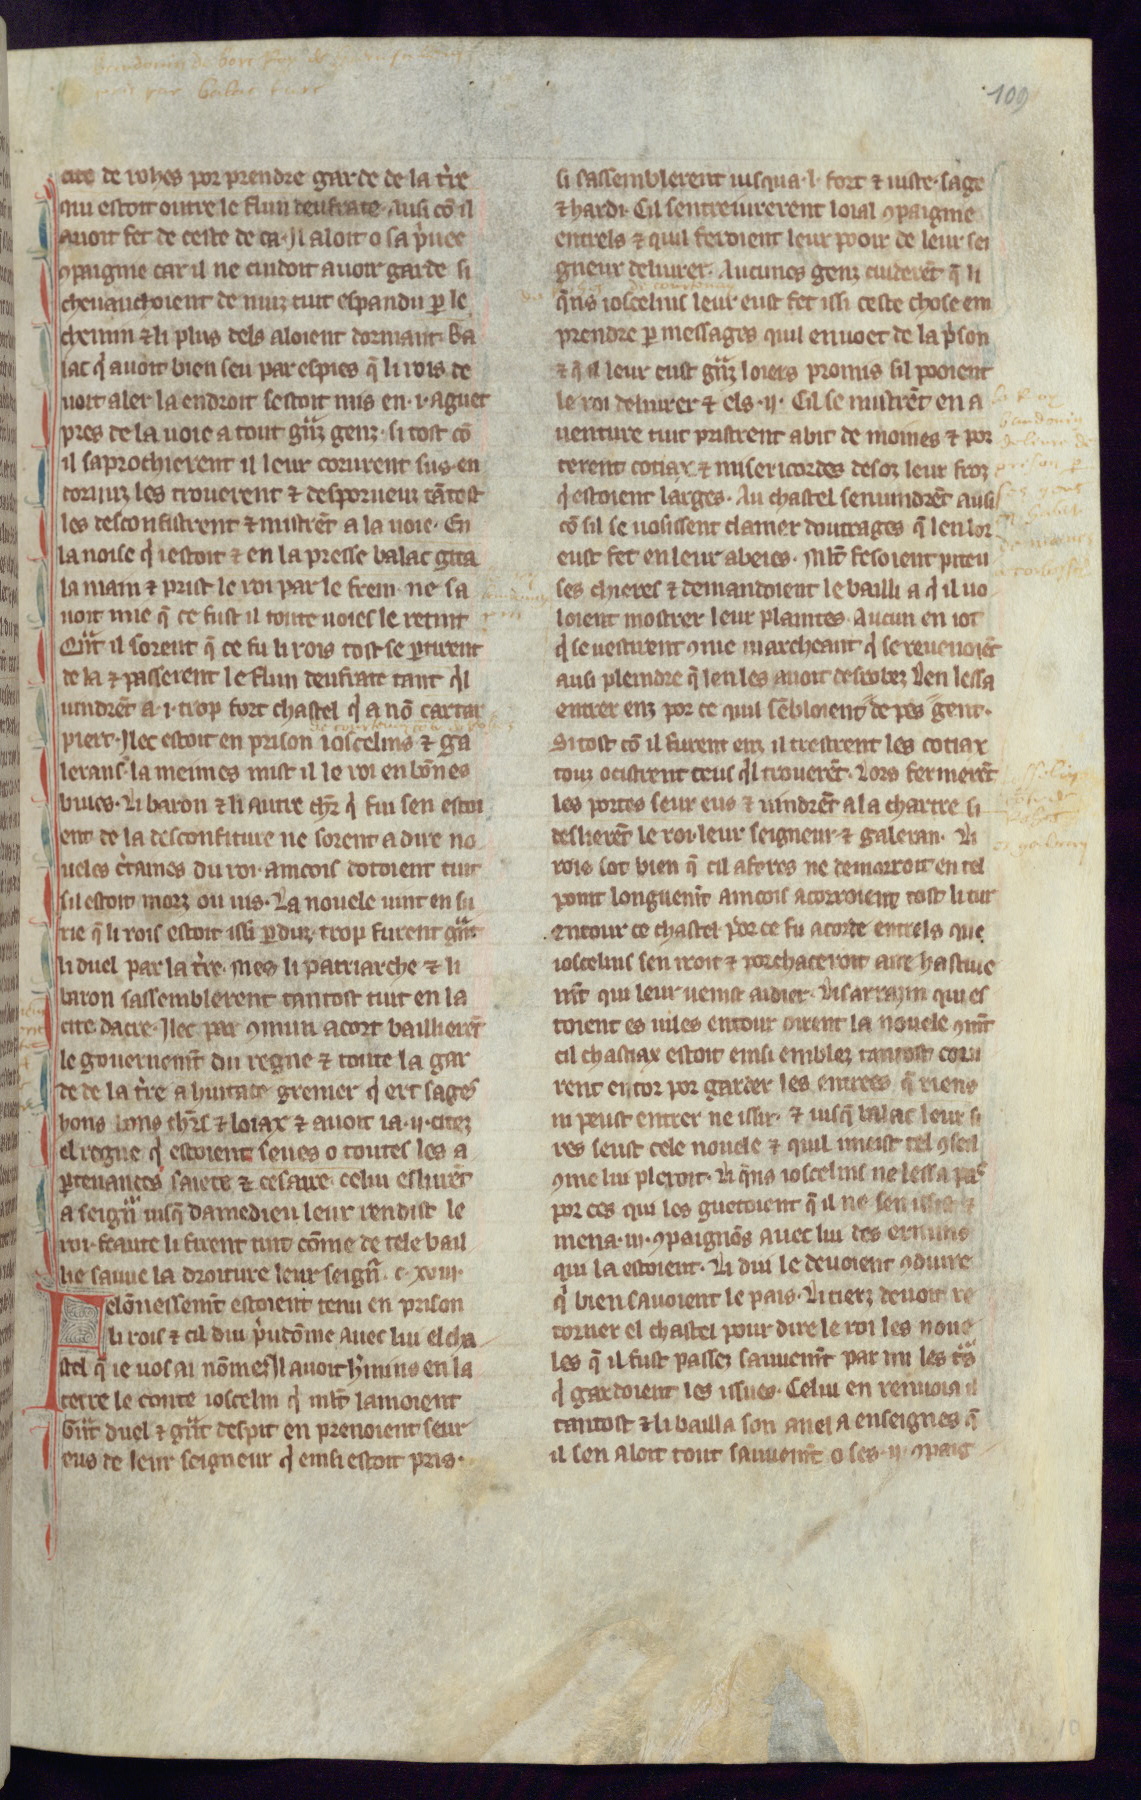 109
cite de rohes por prendre garde de la t̃re
qui estoit outre le flun deufrate. Ausi cõ il
auoit fet de ceste de ca. Il aloit o sa p̃uee
ꝯpaignie car il ne cuidoit auoir garde si
cheuauchoient de nuiz tuit espandu ꝑ le
chemin ⁊ li plus dels aloient dormant. Ba
lac q̇ auoit bien seu par espies q̃ li rois de
uoit aler la endroit sestoit mis en .i. aguet
pres de la uoie a tout gñz genz. si tost cõ
il saprochierent il leur corurent sus. en
tormiz les trouerent ⁊ desporueuz tãtost
les desconfistrent ⁊ mistrẽt a la uoie. En
la noise q̇ iestoit ⁊ en la presse balac gita
la main ⁊ prist le roi par le frein. ne sa
uoit mie q̃ ce fust il toute uoies le retint
Qñt il sorent q̃ ce fu li rois tost se ꝑtirent
de la ⁊ passerent le flun deufrate tant q̇l
uindrẽt a .i. trop fort chastel q̇ a nõ cartar
piert. Ilec estoit en prison ioscelins ⁊ ga
lerans. la meimes mist il le roi en bõnes
buies. Li baron ⁊ li autre ch̃r q̇ fui sen estoi
ent de la desconfiture ne sorent a dire no
ueles c̃taines du roi. aincois dotoient tuit
sil estoit morz ou uis. La nouele uint en su
rie q̃ li rois estoit issi ꝑduz. trop furent gñt
li duel par la t̃re. Mes li patriarche ⁊ li
baron sassemblerent tantost tuit en la
cite dacre. Ilec par ꝯmun acort baillierẽt
le gouuernem̃t du regne ⁊ toute la gar
de de la t̃re a huitace grenier q̇ ert sages
bons hons ch̃rs ⁊ loiax ⁊ auoit ia .ii. citez
el regne q̇ estoient seues o toutes les a
ꝑtenances saiete ⁊ cesaire. celui eslirẽt
a seigñr iusq̃ damedieu leur rendist le
roi. feaute li firent tuit cõme de tele bail
lie sauue la droiture leur seigñ. c. xviii.
Felõnessem̃t estoient tenu en prison
li rois ⁊ cil dui p̃udõme auec lui el cha
stel q̃ ie uos ai nõme. Il auoit h̃mins en la
terre le conte ioscelin q̇ ml̃t lamoient
Gñt duel ⁊ gñt despit en prenoient seur
eus de leur seigneur q̇ einsi estoit pris.
si sassemblerent iusqua .l. fort ⁊ iuste. sage
⁊ hardi. Cil sentreiurerent loial ꝯpaignie
entrels ⁊ quil feroient leur pooir de leur sei
gneur deliurer. Aucunes genz cuiderẽt q̃ li
q̃ns ioscelins leur eust fet issi ceste chose em
prendre ꝑ messages quil enuoet de la p̃son
⁊ q̃ il leur eust gñz loiers promis sil pooient
le roi deliurer ⁊ els .ii. Cil se mistrẽt en a
uenture tuit pristrent abit de moines ⁊ por
terent cotiax ⁊ misericordes desoz leur froz
q̇ estoient larges. Au chastel senuindrẽt ausi
cõ sil se uosissent clamer doutrages q̃ len lor
eust fet en leur abeies. Ml̃t fesoient piteu
ses chieres ⁊ demandoient le bailli a q̇ il uo
loient mostrer leur plaintes. Aucun en iot
q̇ se uestirent ꝯme marcheant q̇ se reuenoiẽt
ausi pleindre q̃ len les auoit desrobez. Len lessa
entrer enz por ce quil sẽbloient de pes gent.
Si tost cõ il furent enz il trestrent les cotiax
touz ocistrent ceus q̇l trouerẽt. Lors fermerẽt
les portes seur eus ⁊ uindrẽt a la chartre si
deslierẽt le roi. leur seigneur ⁊ galeran. Li
rois sot bien q̃ cil aferes ne demorroit en tel
point longuem̃t aincois acorroient tost li tur
entour ce chastel. Por ce fu acorde entrels que
ioscelins sen iroit ⁊ porchaceroit aïe hastiue
m̃t qui leur uenist aidier. Li sarrazin qui es
toient es uiles entour oirent la nouele ꝯm̃t
cil chastiax estoit einsi emblez tantost coru
rent entor por garder les entrees q̃ riens
ni peust entrer ne issir. ⁊ iusq̃ balac leur si
res seust cele nouele ⁊ quil imeist tel ꝯseil
ꝯme lui pleroit. Li q̃ns ioscelins ne lessa pas
por ces qui les guetoient q̃ il ne sen issist ⁊
mena .iii. ꝯpaignõs auec lui des ermins
qui la estoient. Li dui le deuoient ꝯduire
q̇ bien sauoient le pais. Li tierz deuoit re
torner el chastel pour dire le roi les noue
les q̃ il fust passez sauuem̃t par mi les t̃s
q̇ gardoient les issues. Celui en renuoia il
tantost ⁊ li bailla son anel a enseignes q̃
il sen aloit tout sauuem̃t o ses .ii. ꝯpaig